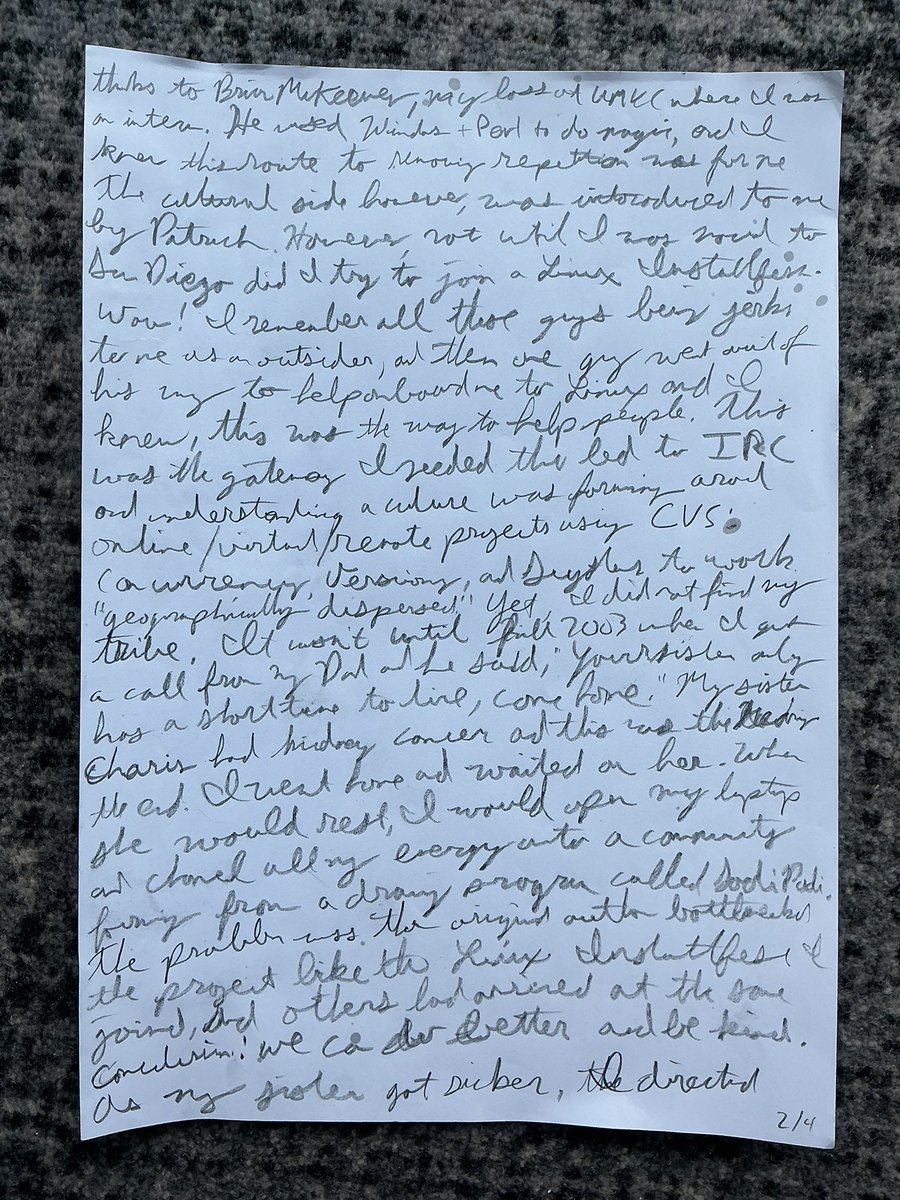 thnks to Brian McKeever, my boss at UMKC where I was
an intern. He used Windws + Perl to do magic, and I
knew this route to removing repetition was for me
The cultural side however, was introduced to me
by Patrick. However, not until I was moved to
San Diego did I try to join a Linux Installfest.
Wow! I remember all these guys being jerks
to me as an outsider, and then one guy went out of
his way to help onboard me to Linux and I
knew, this was the way to help people. This
was the gateway I needed that led to IRC
and understanding a culture was forming around
online/virtual/remote projects using CVS:
Concurrency, Versioning, and Systems to work
"geographically dispersed." Yet, I did not find my
tribe. It wasn't until fall 2003 when I got
a call from my Dad and he said, "Your sister only
has a short time to live, come home." My sister
Charis had kidney cancer and this was the
the end. I went home and waited on her. When
she would rest, I would open my laptop
and channel all my energy into a community
forming from a drawing program called SodiPodi.
The problem was the original author bottlenecked
the project like the Linux Installfest I
joined, and others had arrived at the same
conclusion! we can do better and be kind.
As my sister got sicker, the directed
2/4